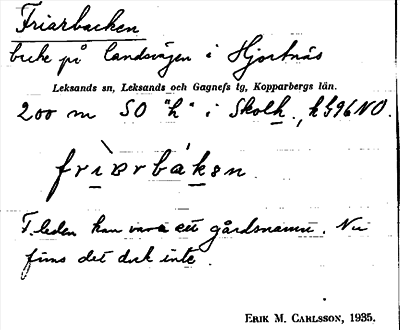 Friarbacken
backe på landsvägen i Hjortnäs
Leksands sn, Leksands och Gagnefs tg, Kopparbergs län.
200 m SO "h" i Skolh., k 596 NO.
friərbakən
F.leden kan vara ett gårdsnamn. Nu
finns det dock inte.
ERIK M. CARLSSON, 1935.